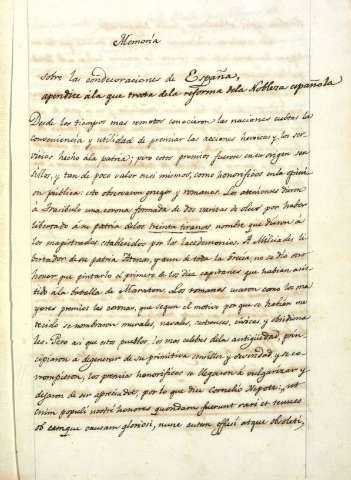 Memoria
sobre las condecoraciones de España,
apendice á la que trata de la reforma de la Nobleza española
Desde los tiempos mas remotos conocieron las naciones cultas la
conveniencia y utilidad de premiar las acciones heroicas y los ser-
vicios hecho á la patria; pero estos premios fueron en su origen sen-
cillos, y tan de poco valor en si mismos, como honorificos en la opini-
on publica: esto observaron griegos y romanos. Los atenienses dieron
á Trasibulo una corona formada de dos varitas de olivo por haber
libertado á su patria de los treinta tiranos nombre que dieron á
los magistrados establecidos por los Lacedemonios. A Milciades li-
bertador de su patria Atenas, y aun de toda la Grecia no se dio otro
honor que pintarlo el primero de los diez capitanes que habian asis-
tido á la batalla de Maraton. Los romanos usaron como los ma-
yores premios las coronas, que segun el motivo por que se habian me-
recido se nombraron murales, navales, castrenses, civicas y obsidiona-
les. Pero asi que estos pueblos, los mas celebres de la antigüedad, prin-
cipiaron á degenerar de su primitiva sencillez y severidad y se co-
rrompieron, los premios honorificos se llegaron á vulgarizar y
dejaron de ser apreciados; por lo que dice Cornelio Nepote:, ut
enim populi nostri honores quondam fuerunt rari et tenues
ob eamque causam gloriosi, nunc autem effusi atque obsoleti,